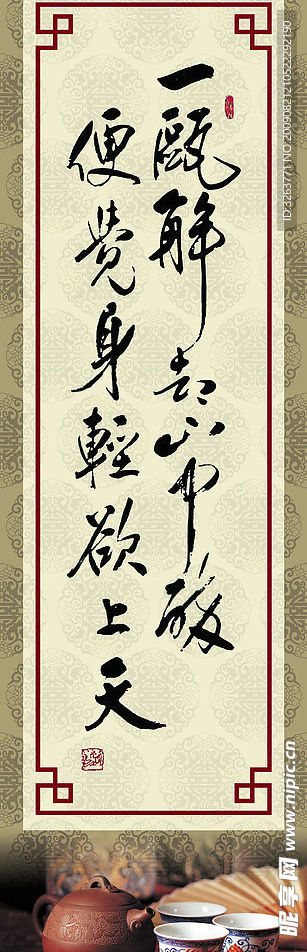 一甌解却山中醉
便覺身輕欲上天
ID:3263771 NO:20090821210522292190
昵享网 www.nipic.cn